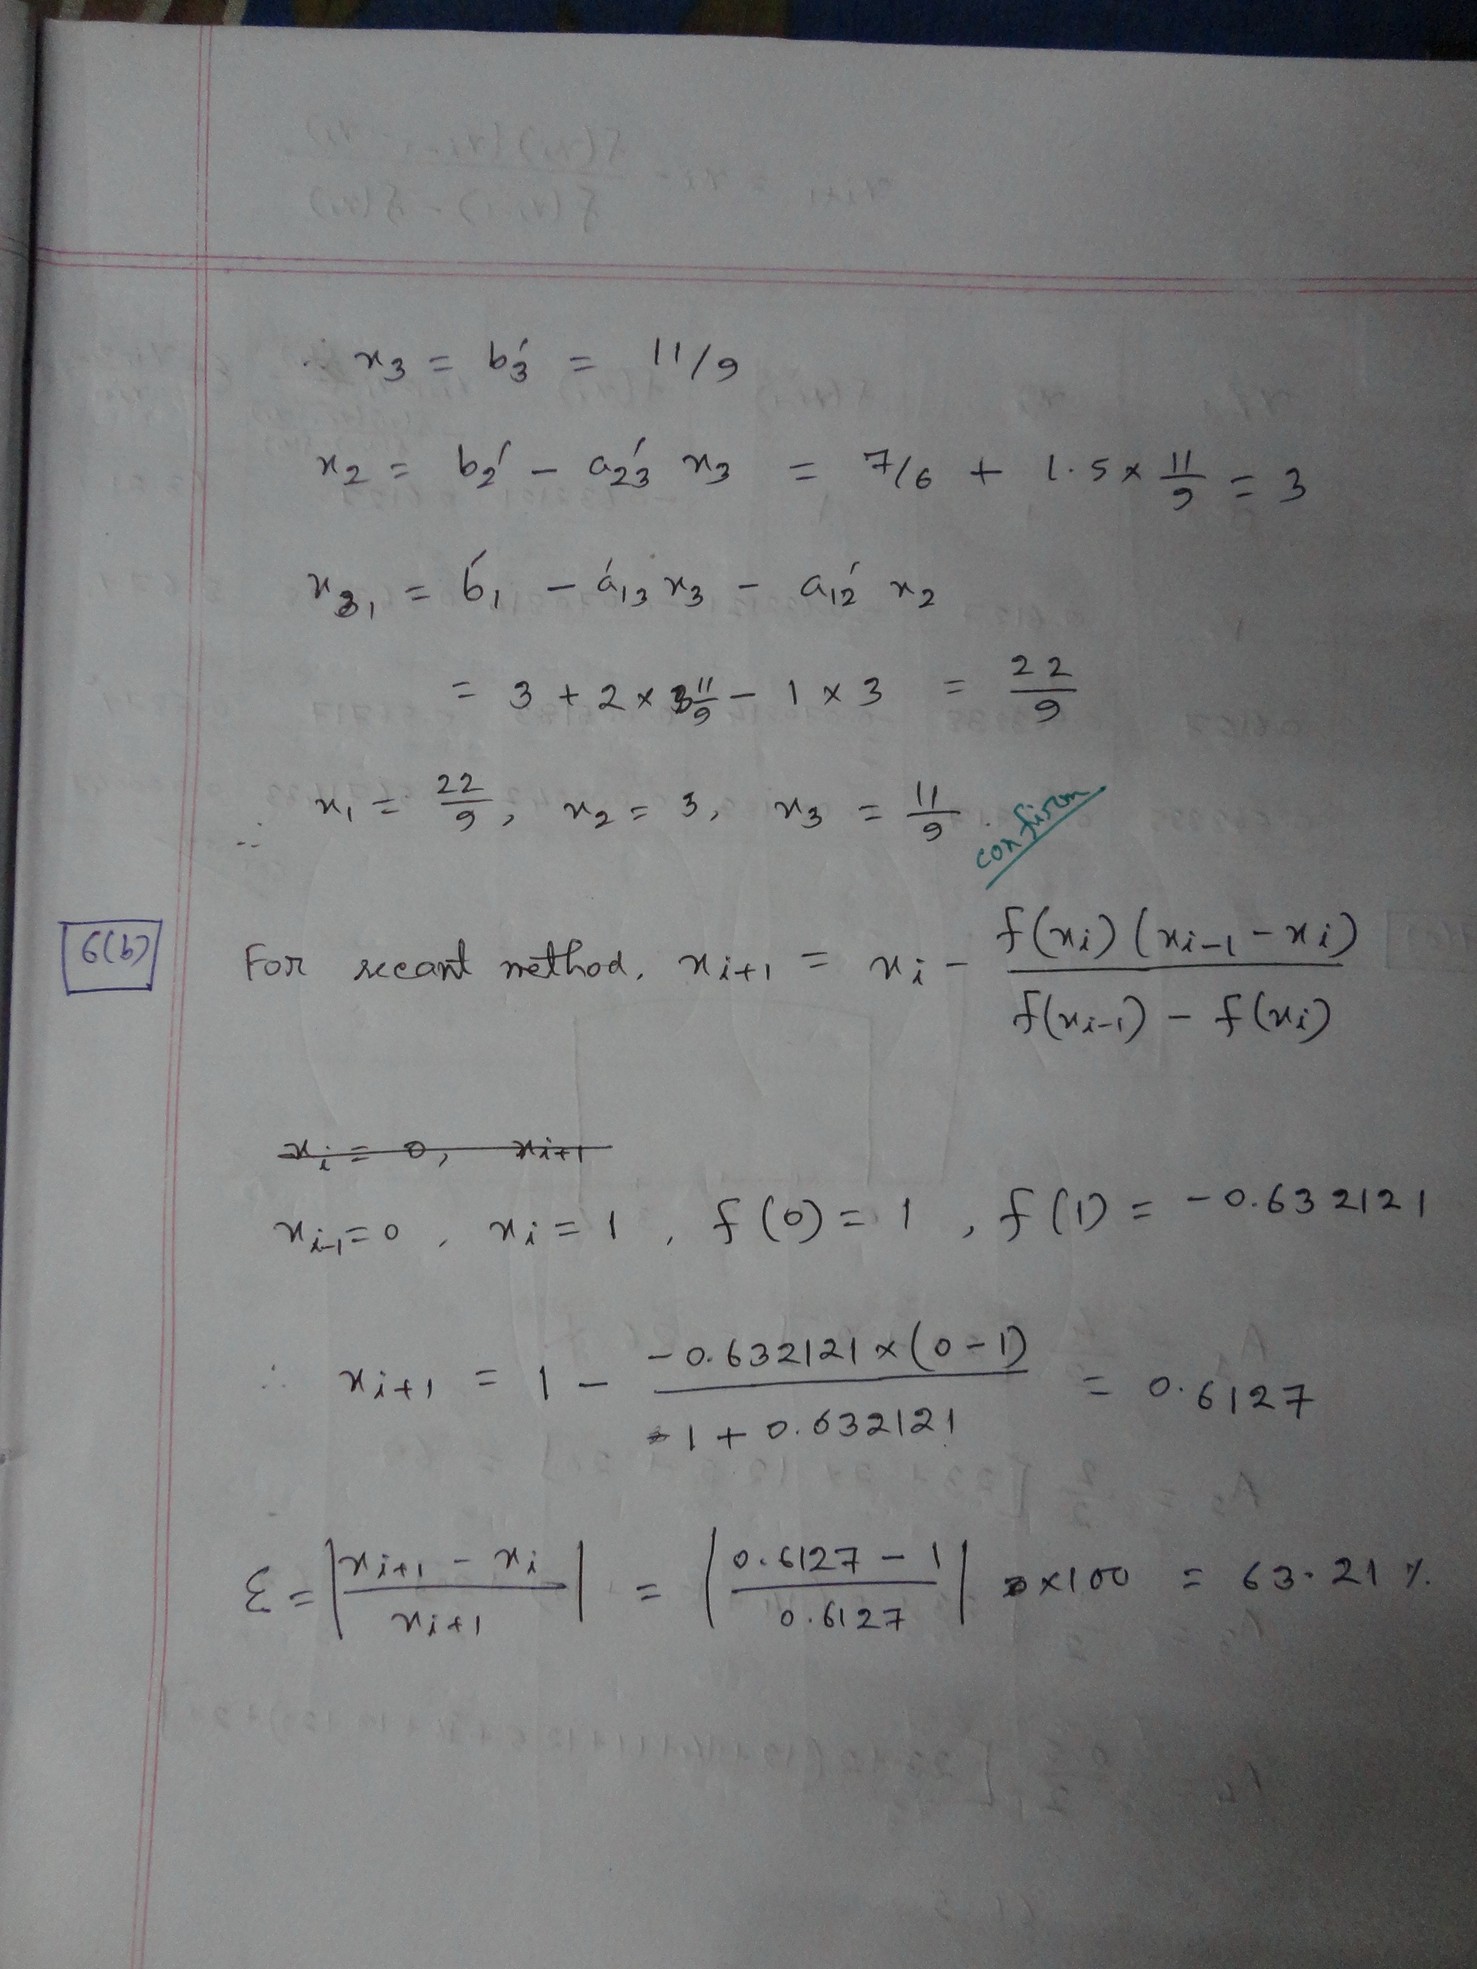 ∴ x₃ = b₃′ = 11/9
x₂ = b₂′ − a₂₃′ x₃ = 7/6 + 1.5 × 11/9 = 3
x₁ = b₁′ − a₁₃′ x₃ − a₁₂′ x₂
= 3 + 2 × 11/9 − 1 × 3 = 22/9
∴ x₁ = 22/9, x₂ = 3, x₃ = 11/9. confirm
6(b) For secant method, xᵢ₊₁ = xᵢ − f(xᵢ)(xᵢ₋₁ − xᵢ) / f(xᵢ₋₁) − f(xᵢ)
xᵢ = 0, xᵢ₊₁
xᵢ₋₁ = 0, xᵢ = 1, f(0) = 1, f(1) = −0.632121
∴ xᵢ₊₁ = 1 − −0.632121 × (0 − 1) / 1 + 0.632121 = 0.6127
Ɛ = |xᵢ₊₁ − xᵢ / xᵢ₊₁| = |0.6127 − 1 / 0.6127| × 100 = 63.21 %.